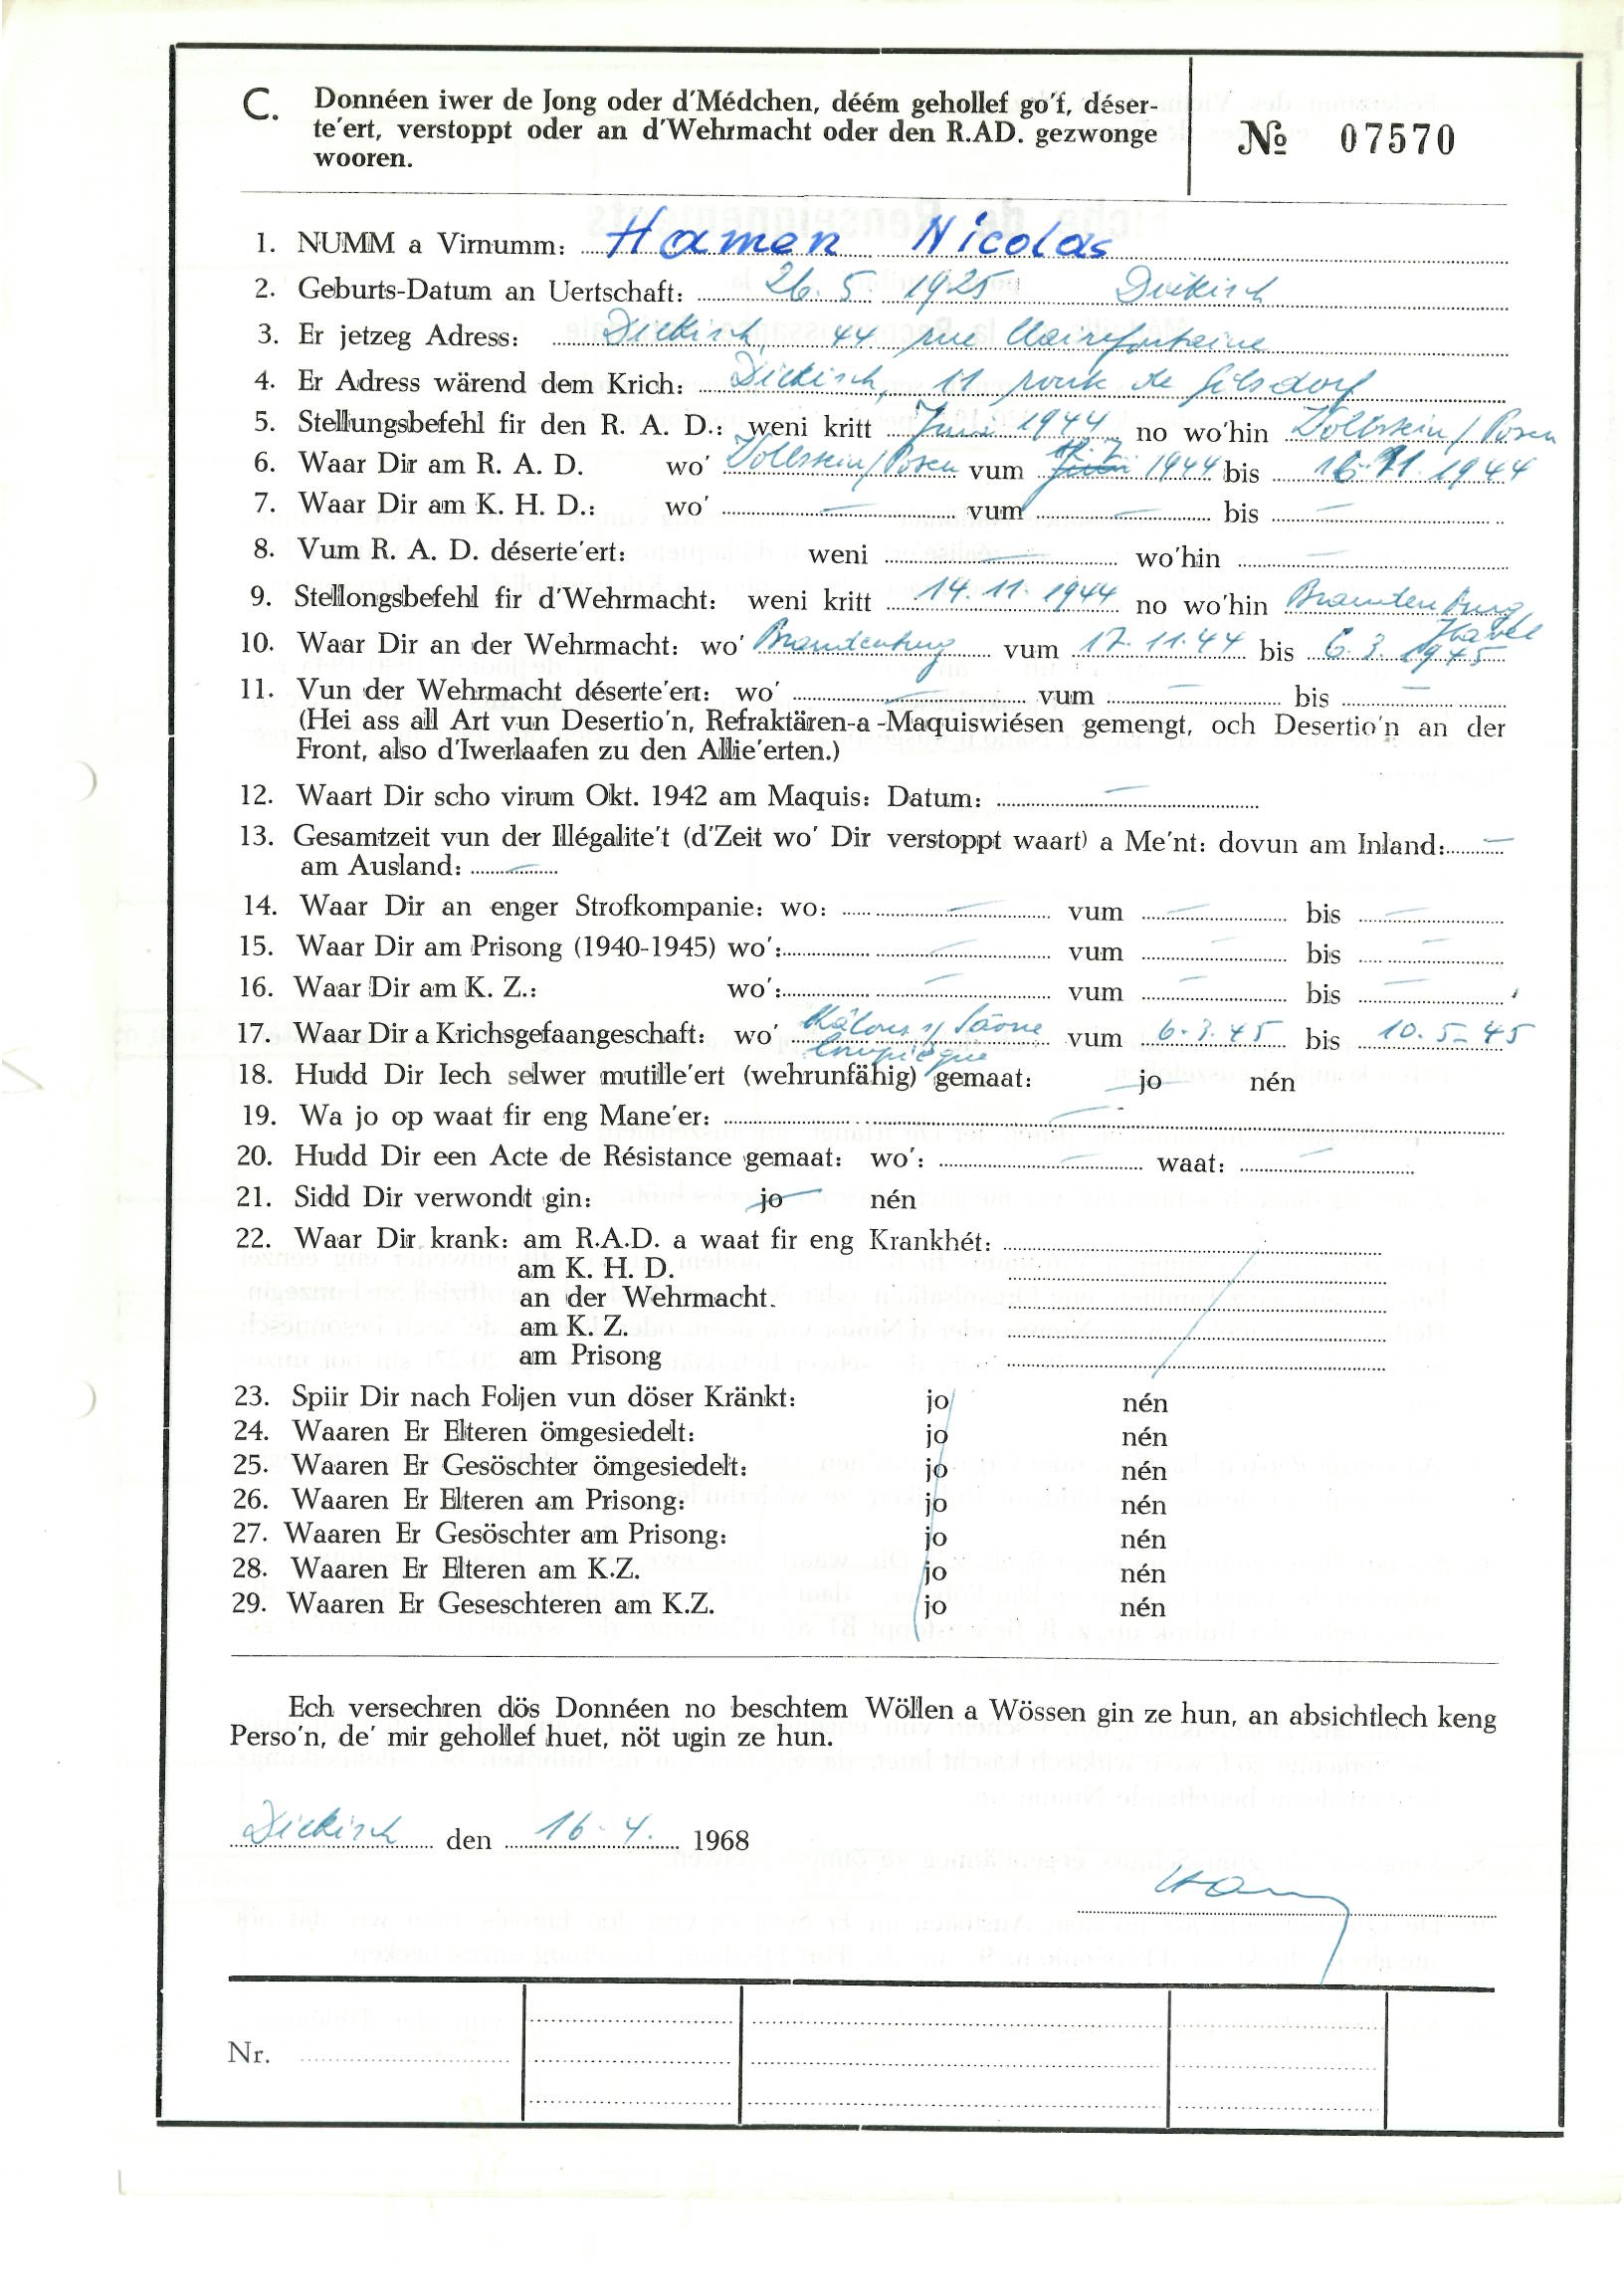 C. Donnéen iwer de Jong oder d'Médchen, déém gehollef go'f, déser-
te'ert, verstoppt oder an d'Wehrmacht oder den R.AD. gezwonge
wooren.
№ 07570
1. NUMM a Virnumm: Hamen Nicolas
2. Geburts-Datum an Uertschaft: 26.5 1925 Diekisch
3. Er jetzeg Adress: Diekisch, 44 rue Clairefontaine
4. Er Adress wärend dem Krich: Diekisch, 11 route de Gilsdorf
5. Stellungsbefehl fir den R. A. D.: weni kritt Juni 1944 no wo'hin Wollstein/Posen
6. Waar Dir am R. A. D. wo' Wollstein/Posen vum 1944 bis 16.11.1944
7. Waar Dir am K. H. D.: wo' — vum — bis —
8. Vum R. A. D. déserte'ert: weni — wo'hin —
9. Stellongsbefehl fir d'Wehrmacht: weni kritt 14.11.1944 no wo'hin Brandenburg
Havel
10. Waar Dir an der Wehrmacht: wo' Brandenburg vum 17.11.44 bis 6.3.1945
11. Vun der Wehrmacht déserte'ert: wo' — vum — bis —
(Hei ass all Art vun Desertio'n, Refraktären-a -Maquiswiésen gemengt, och Desertio'n an der
Front, also d'Iwerlaafen zu den Allie'erten.)
12. Waart Dir scho virum Okt. 1942 am Maquis: Datum: —
13. Gesamtzeit vun der Illégalite't (d'Zeit wo' Dir verstoppt waart) a Me'nt: dovun am Inland: —
am Ausland: —
14. Waar Dir an enger Strofkompanie: wo: — vum — bis —
15. Waar Dir am Prisong (1940-1945) wo': — vum — bis —
16. Waar Dir am K. Z.: wo': — vum — bis —
17. Waar Dir a Krichsgefaangeschaft: wo' Mâlons s/ Sâone vum 6.3.45 bis 10.5-45
Compiègne
18. Hudd Dir Iech selwer mutille'ert (wehrunfähig) gemaat: jo nén
19. Wa jo op waat fir eng Mane'er: —
20. Hudd Dir een Acte de Résistance gemaat: wo': — waat: —
21. Sidd Dir verwondt gin: jo nén
22. Waar Dir krank: am R.A.D. a waat fir eng Krankhét:
am K. H. D.
an der Wehrmacht.
am K. Z.
am Prisong
23. Spiir Dir nach Foljen vun döser Kränkt: jo nén
24. Waaren Er Elteren ömgesiedelt: jo nén
25. Waaren Er Gesöschter ömgesiedelt: jo nén
26. Waaren Er Elteren am Prisong: jo nén
27. Waaren Er Gesöschter am Prisong: jo nén
28. Waaren Er Elteren am K.Z. jo nén
29. Waaren Er Geseschteren am K.Z. jo nén
Ech versechren dös Donnéen no beschtem Wöllen a Wössen gin ze hun, an absichtlech keng
Perso'n, de' mir gehollef huet, nöt ugin ze hun.
Diekisch den 16.4. 1968
Nr.